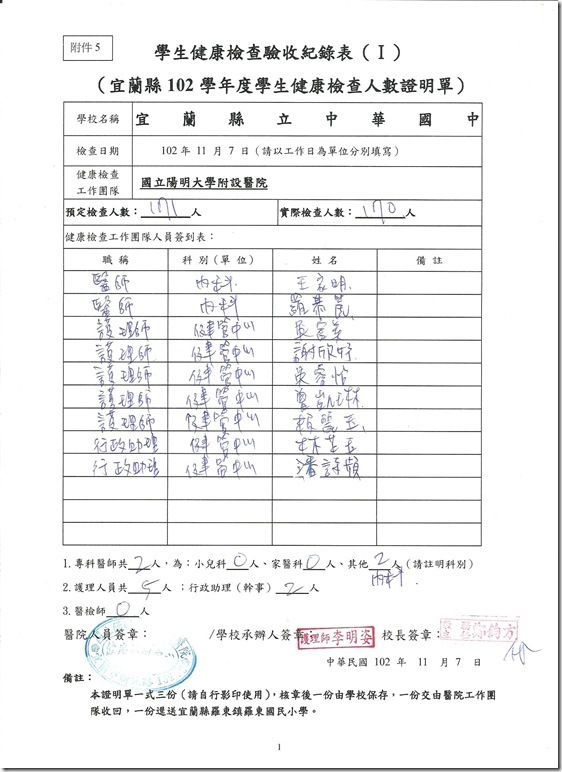 附件 5
學生健康檢查驗收紀錄表（I）
（宜蘭縣 102 學年度學生健康檢查人數證明單）
學校名稱 宜蘭縣立中華國中
檢查日期 102 年 11 月 7 日（請以工作日為單位分別填寫）
健康檢查工作團隊 國立陽明大學附設醫院
預定檢查人數：171人 實際檢查人數：170人
健康檢查工作團隊人員簽到表：
職稱 科別(單位) 姓名 備註
醫師 內科 王家明
醫師 內科 羅
護理師 健管中心 吳
護理師 健管中心 謝欣妤
護理師 健管中心 吳睿怡
護理師 健管中心 曾凱琳
護理師 健管中心 賴
行政助理 健管中心 林
行政助理 健管中心 潘詩
1.專科醫師共2人，為：小兒科0人、家醫科0人、其他2人（請註明科別）
內科
2.護理人員共5人；行政助理（幹事）2人
3.醫檢師0人
醫院人員簽章： /學校承辦人簽章 護理師李明姿 校長簽章：
中華民國 102 年 11 月 7 日
備註：
本證明單一式三份（請自行影印使用），核章後一份由學校保存，一份交由醫院工作團
隊收回，一份逕送宜蘭縣羅東鎮羅東國民小學。
1